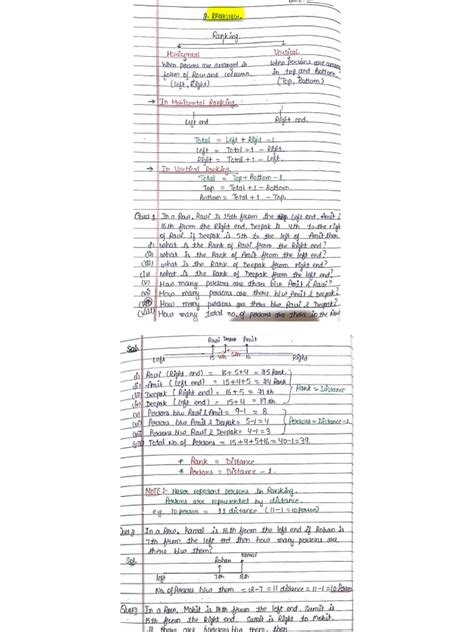 2. RANKING.
Ranking.
Horizontal Vertical.
When persons are arranged in When Persons are
form of Row and column. in top and Bottom
(Left, Right) (Top, Bottom)
→ In Horizontal Ranking.
Left end Right end.
Total = Left + Right - 1
Left = Total + 1 - Right.
Right = Total + 1 - Left.
→ In Vertical Ranking.
Total = Top + Bottom - 1.
Top = Total + 1 - Bottom.
Bottom = Total + 1 - Top.
Ques 1 In a Row, Ravi is 15th from the left end. Amit is
16th from the Right end. Deepak is 4th to the right
of Ravi if Deepak is 5th to the left of Amit then
(i) what is the Rank of Ravi from the Right end?
(ii) what is the Rank of Amit from the left end?
(iii) what is the Rank of Deepak from right end?
(iv) what is the Rank of Deepak from the left end?
(v) How many persons are there b/w Amit & Ravi?
(vi) How many persons are there b/w Amit & Deepak?
(vii) How many persons are there b/w Ravi & Deepak?
(viii) How many total no. of persons are there in the Row
Ravi Deepak Amit
Sol. 15 4th 5th 16
Left Right
(i) Ravi (Right end) = 16+5+4 = 25 Rank
(ii) Amit (left end) = 15+4+5 = 24 Rank
(iii) Deepak (Right end) = 16+5 = 21th Rank = Distance
(iv) Deepak (left end) = 15+4 = 19th
(v) Persons b/w Ravi & Amit = 9-1 = 8
(vi) Persons b/w Amit & Deepak = 5-1 = 4 Persons = Distance - 1
(vii) Persons b/w Ravi & Deepak = 4-1 = 3
(viii) Total No. of Persons = 15+4+5+16 = 40-1 = 39.
* Rank = Distance
* Persons = Distance - 1.
NOTE:- Never represent persons in Ranking.
Persons are represented by distance.
e.g. 10 person = 11 distance (11-1=10 person)
Ques 2 In a Row, Kamal is 18th from the left end if Rohan is
7th from the left end then how many persons are
there b/w them?
Sol. Rohan Kamal
left 7th 18th
No. of Persons b/w them = 18-7 = 11 distance = 11-1 = 10 Person
Ques 3 In a Row, Mohit is 18th from the left end. Sumit is
15th from the Right end. Sumit is Right to Mohit.
if there are persons b/w them, then